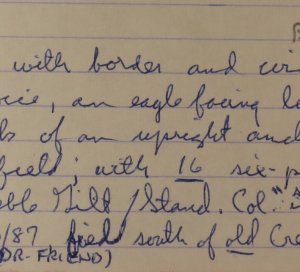 with border and
, an eagle facing
of an upright and
field; with 16 six-p
Gilt / Stand. Col.
/87 fied south of old Cre
DR-FRIEND)